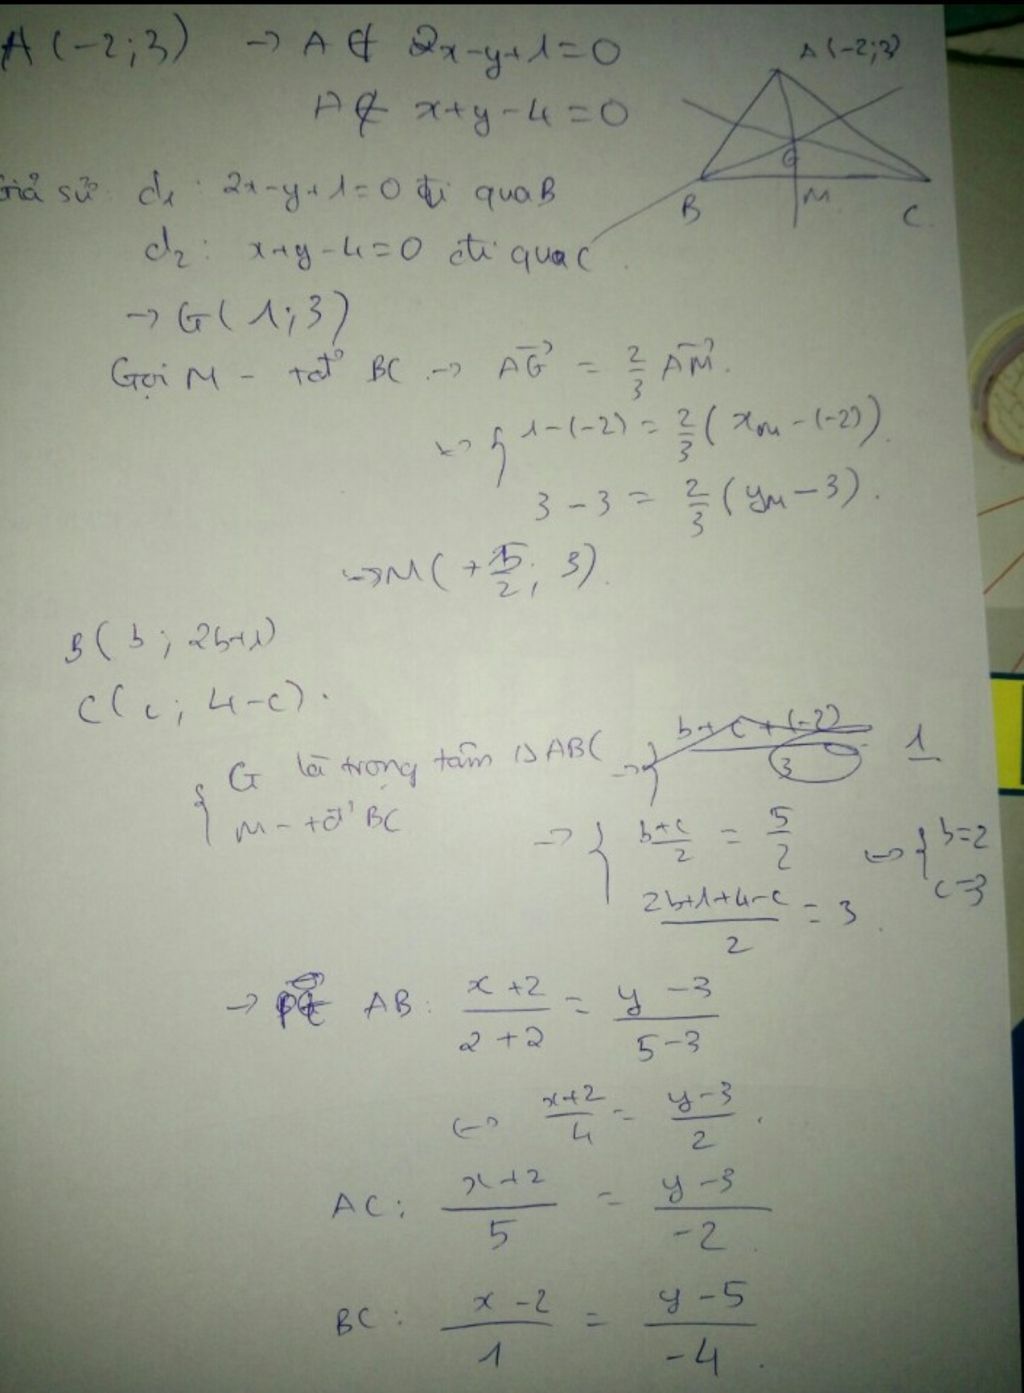 A(-2;3) → A ∉ 2x-y+1=0
A(-2;3)
A ∉ x+y-4=0
G
B M C
Giả sử: d₁: 2x-y+1=0 đi qua B
d₂: x+y-4=0 đi qua C
→ G(1;3)
Gọi M - tđ BC → AG = 2/3 AM.
↔ { 1-(-2) = 2/3 (x_M-(-2))
3-3 = 2/3 (y_M-3).
→ M(+5/2; 3).
B(b; 2b+1)
C(c; 4-c).
{ G là trọng tâm △ABC → { b+c+(-2)/3 1
M - tđ BC
→ { b+c/2 = 5/2 ↔ { b=2
2b+1+4-c/2 = 3. c=3
→ AB: x+2/2+2 = y-3/5-3
↔ x+2/4 = y-3/2.
AC: x+2/5 = y-3/-2.
BC: x-2/1 = y-5/-4.